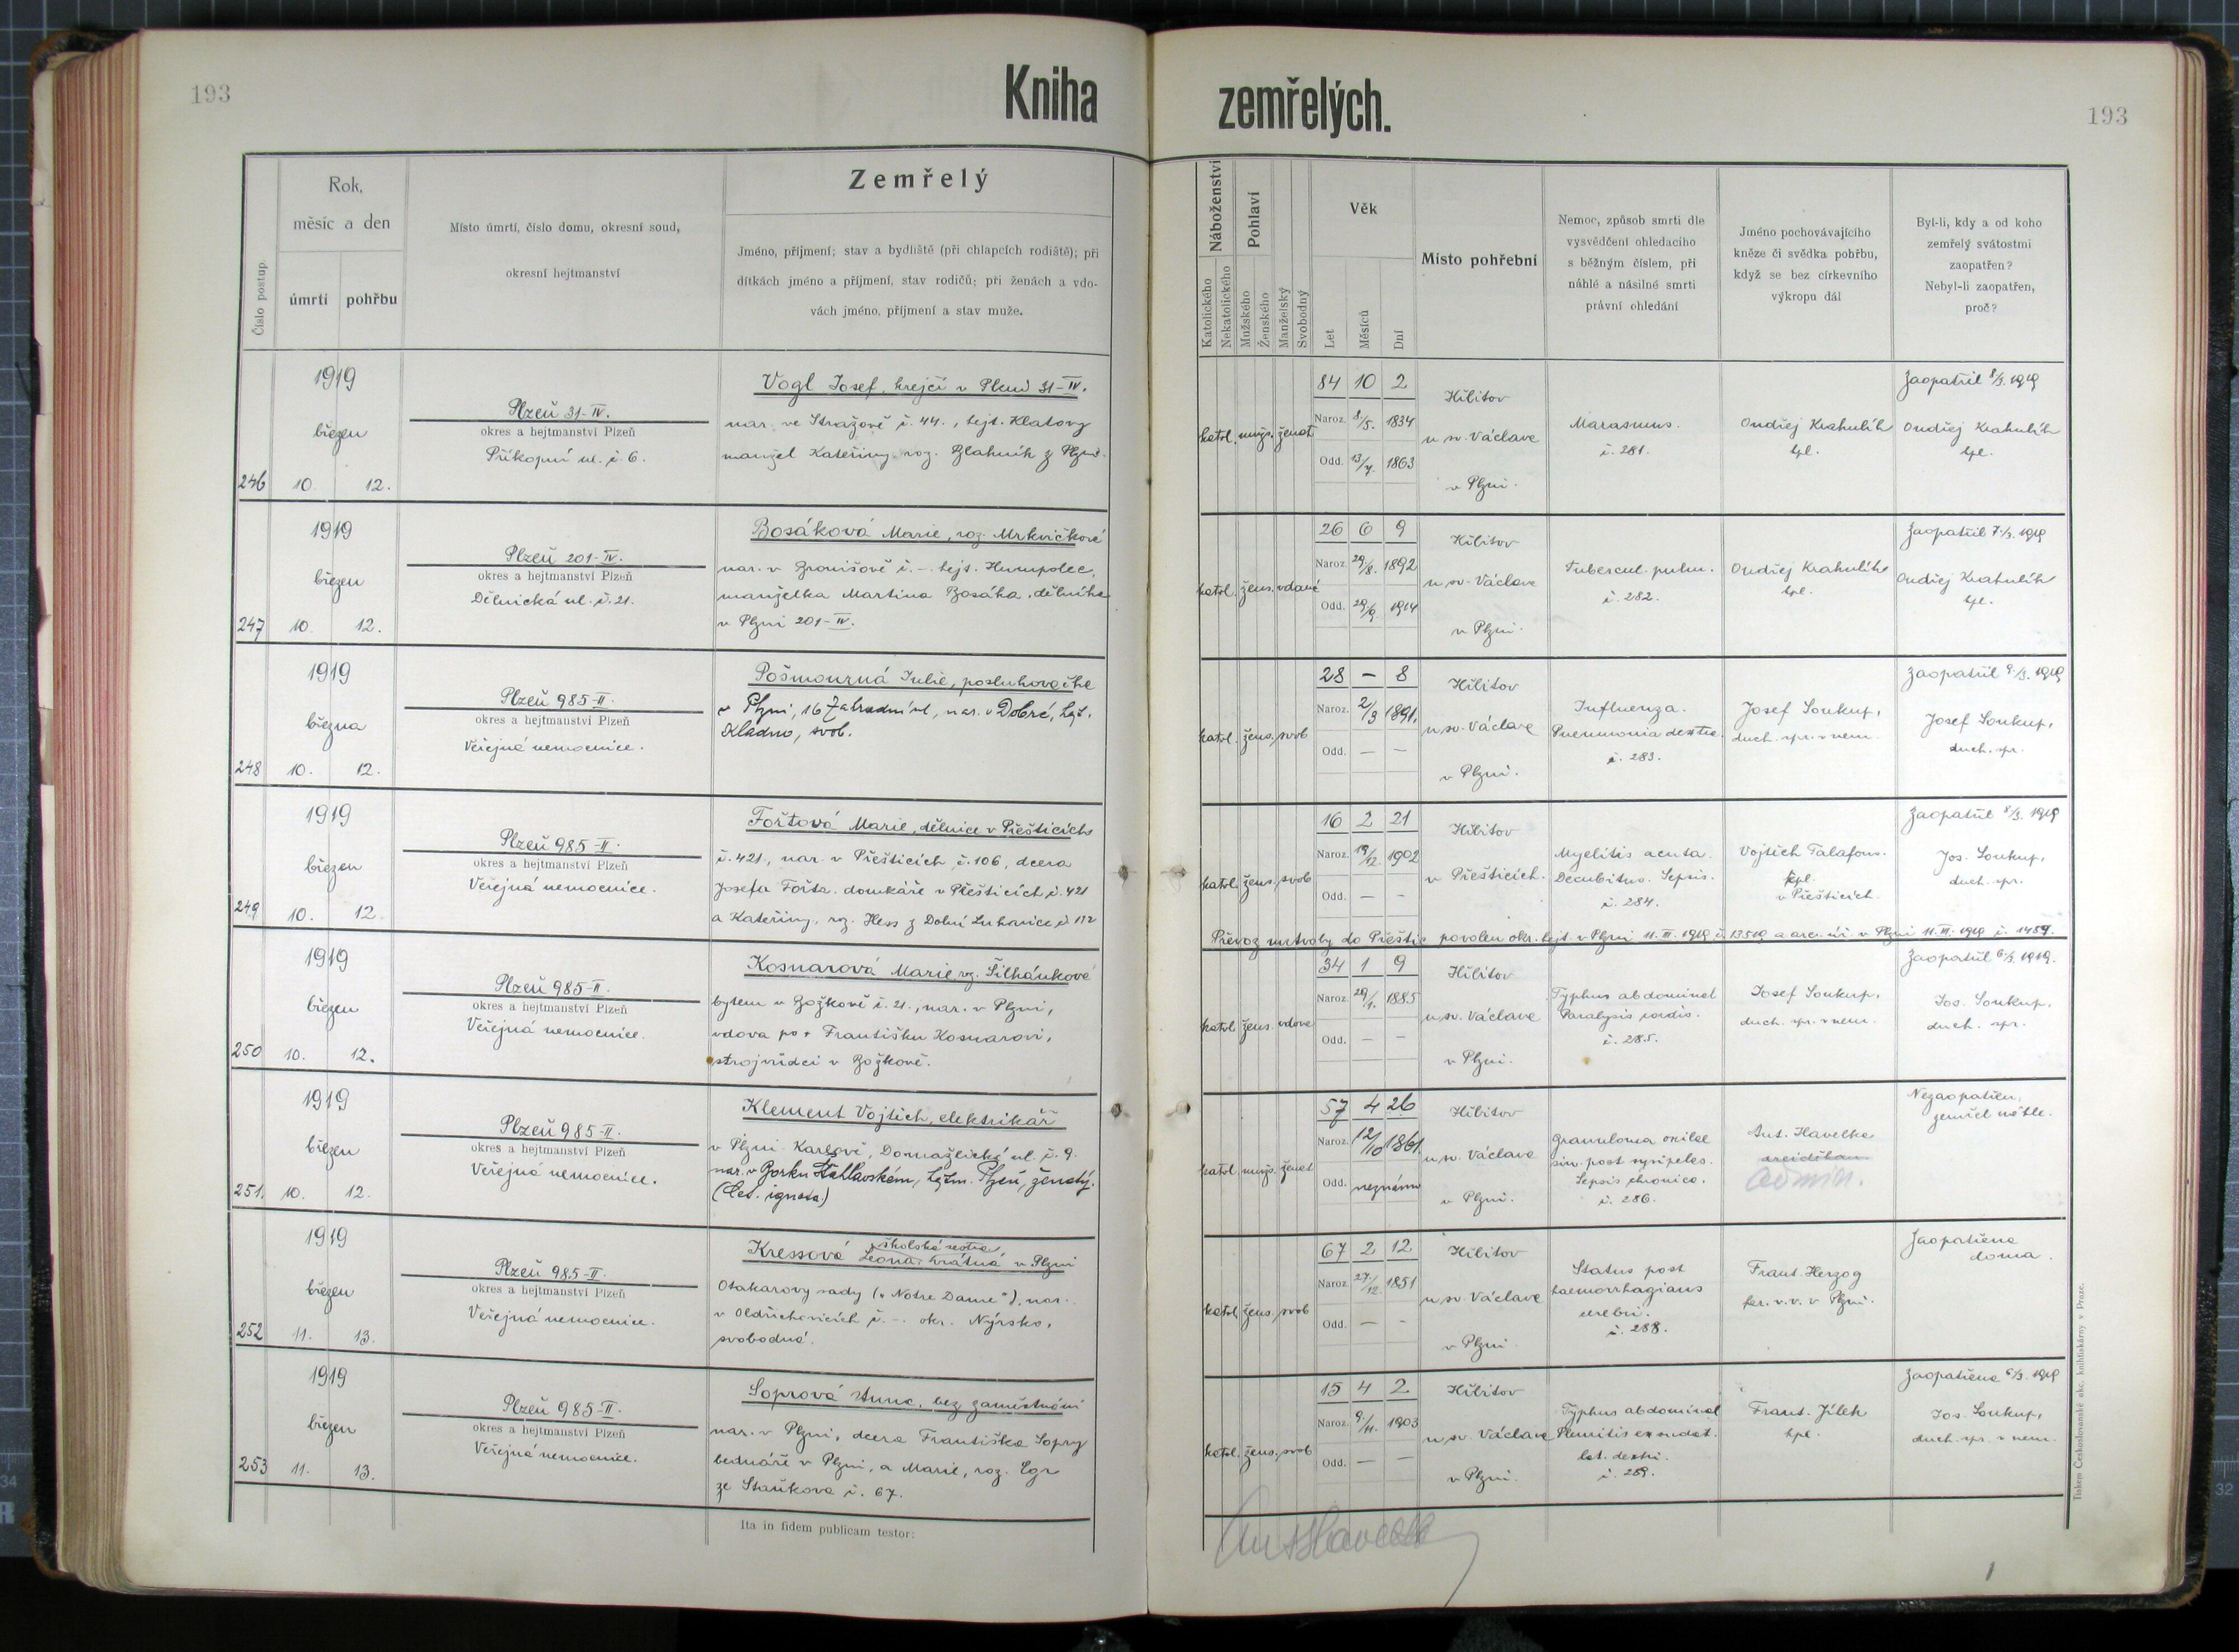 193
Kniha
zemřelých.
193
Číslo postup.
Rok,
měsíc a den
úmrtí
pohřbu
Místo úmrtí, číslo domu, okresní soud,
okresní hejtmanství
Zemřelý
Jméno, příjmení; stav a bydliště (při chlapcích rodiště); při
dítkách jméno a příjmení, stav rodičů; při ženách a vdo-
vách jméno, příjmení a stav muže.
Náboženství
Katolického
Nekatolického
Pohlaví
Mužského
Ženského
Manželský
Svobodný
Věk
Let
Měsíců
Dní
Místo pohřební
Nemoc, způsob smrti dle
vysvědčení ohledacího
s běžným číslem, při
náhlé a násilné smrti
právní ohledání
Jméno pochovávajícího
kněze či svědka pohřbu,
když se bez církevního
výkropu dál
Byl-li, kdy a od koho
zemřelý svátostmi
zaopatřen?
Nebyl-li zaopatřen,
proč?
246
1919
březen
10. 12.
Plzeň 31-IV.
okres a hejtmanství Plzeň
Příkopní ul. č. 6.
Vogl Josef, krejčí v Plzni 31-IV.
nar. ve Strážově č. 44., hejt. Klatovy
manžel Kateřiny roz. Blahník z Plzně.
katol. muž. ženat
84 10 2
Naroz. 8/5. 1834
Odd. 13/7. 1863
Hřbitov
u sv. Václava
v Plzni.
Marasmus.
č. 281.
Ondřej Krahulík
kpl.
Zaopatřil 8/3. 1919
Ondřej Krahulík
kpl.
247
1919
březen
10. 12.
Plzeň 201-IV.
okres a hejtmanství Plzeň
Dělnická ul. č. 21.
Bosáková Marie, roz. Mrkvičková
nar. v č. -. hejt. Humpolec,
manželka Martina Bosáka, dělníka
v Plzni 201-IV.
katol. žens. vdaná
26 6 9
Naroz. 29/8. 1892
Odd. 1914
Hřbitov
u sv. Václava
v Plzni.
Tubercul. pulm.
č. 282.
Ondřej Krahulík
kpl.
Zaopatřil 7/3. 1919
Ondřej Krahulík
kpl.
248
1919
března
10. 12.
Plzeň 985-II.
okres a hejtmanství Plzeň
Veřejná nemocnice.
Pošmourná Julie, posluhovačka
v Plzni, 16 Zahradní ul, nar. v Dobré, hejt.
Kladno, svob.
katol. žens. svob
28 - 8
Naroz. 2/3 1891.
Odd. — —
Hřbitov
u sv. Václava
v Plzni.
Influenza.
Pneumonia dextra.
č. 283.
Josef Soukup,
duch. spr. v nem.
Zaopatřil 9/3. 1919
Josef Soukup,
duch. spr.
249
1919
březen
10. 12.
Plzeň 985-II.
okres a hejtmanství Plzeň
Veřejná nemocnice.
Fořtová Marie, dělnice v Přešticích
č. 421, nar. v Přešticích č. 106, dcera
Josefa Fořta, domkáře v Přešticích č. 421
a Kateřiny, roz. Hess z Dolní Lukavice č. 112
katol. žens. svob
16 2 21
Naroz. 19/12. 1902
Odd. — —
Hřbitov
v Přešticích.
Myelitis acuta.
Decubitus. Sepsis.
č. 284.
Vojtěch Talafous.
kpl.
v Přešticích.
Zaopatřil 8/3. 1919
Jos. Soukup,
duch. spr.
Převoz mrtvoly do Přeštic povolen okr. hejt. v Plzni 11. III. 1919 č. 13519 a arci. úř. v Plzni 11. III. 1919 č. 1459.
250
1919
březen
10. 12.
Plzeň 985-II.
okres a hejtmanství Plzeň
Veřejná nemocnice.
Kosnarová Marie roz. Šilhánková
bytem v Božkově č. 21., nar. v Plzni,
vdova po † Františku Kosnarovi,
strojvůdci v Božkově.
katol. žens. vdova
34 1 9
Naroz. 29/1. 1885
Odd. — —
Hřbitov
u sv. Václava
v Plzni.
Typhus abdominal
Paralysis cordis.
č. 285.
Josef Soukup,
duch. spr. v nem.
Zaopatřil 6/3. 1919.
Jos. Soukup,
duch. spr.
251.
1919
březen
10. 12.
Plzeň 985-II.
okres a hejtmanství Plzeň
Veřejná nemocnice.
Klement Vojtěch, elektrikář
v Plzni-Karlově, Domažlická ul. č. 9.
nar. v Borku Štáhlavském, hejtm. Plzeň, ženatý.
(Cet. ignota)
katol. muž. ženat
57 4 26
Naroz. 12/10 1861.
Odd. neznámo
Hřbitov
u sv. Václava
v Plzni.
Granuloma
post erysipelas.
Sepsis chronica.
č. 286.
Ant. Havelka
arciděkan
admin.
Nezaopatřen,
zemřel náhle.
252
1919
březen
11. 13.
Plzeň 985-II.
okres a hejtmanství Plzeň
Veřejná nemocnice.
školská sestra,
Kressová Leona, vrátná v Plzni
Otakarovy sady („Notre Dame“), nar.
v Oldřichovicích č. -. okr. Nýrsko,
svobodná.
katol. žens. svob
67 2 12
Naroz. 27/12. 1851
Odd. — -
Hřbitov
u sv. Václava
v Plzni.
Status post
haemorrhagiam
cerebri.
č. 288.
Frant. Herzog
far. v. v. v Plzni.
Zaopatřena
doma.
253
1919
březen
11. 13.
Plzeň 985-II.
okres a hejtmanství Plzeň
Veřejná nemocnice.
Soprová Anna, bez zaměstnání
nar. v Plzni, dcera Františka Sopry
bednáře v Plzni, a Marie, roz. Egr
ze Staňkova č. 67.
katol. žens. svob
15 4 2
Naroz. 9/11. 1903
Odd. — —
Hřbitov
u sv. Václava
v Plzni.
Typhus abdominal
Pleuritis exsudat.
lat. dextri.
č. 289.
Frant. Jílek
kpl.
Zaopatřena 6/3. 1919
Jos. Soukup,
duch. spr. v nem.
Ita in fidem publicam testor:
Ant Havelka
Tiskem Českoslovanské akc. knihtiskárny v Praze.